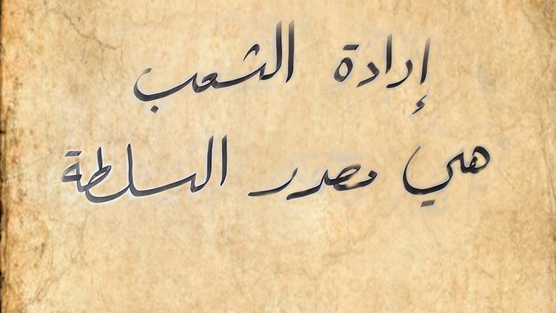 إرادة الشعب
هي مصدر السلطة